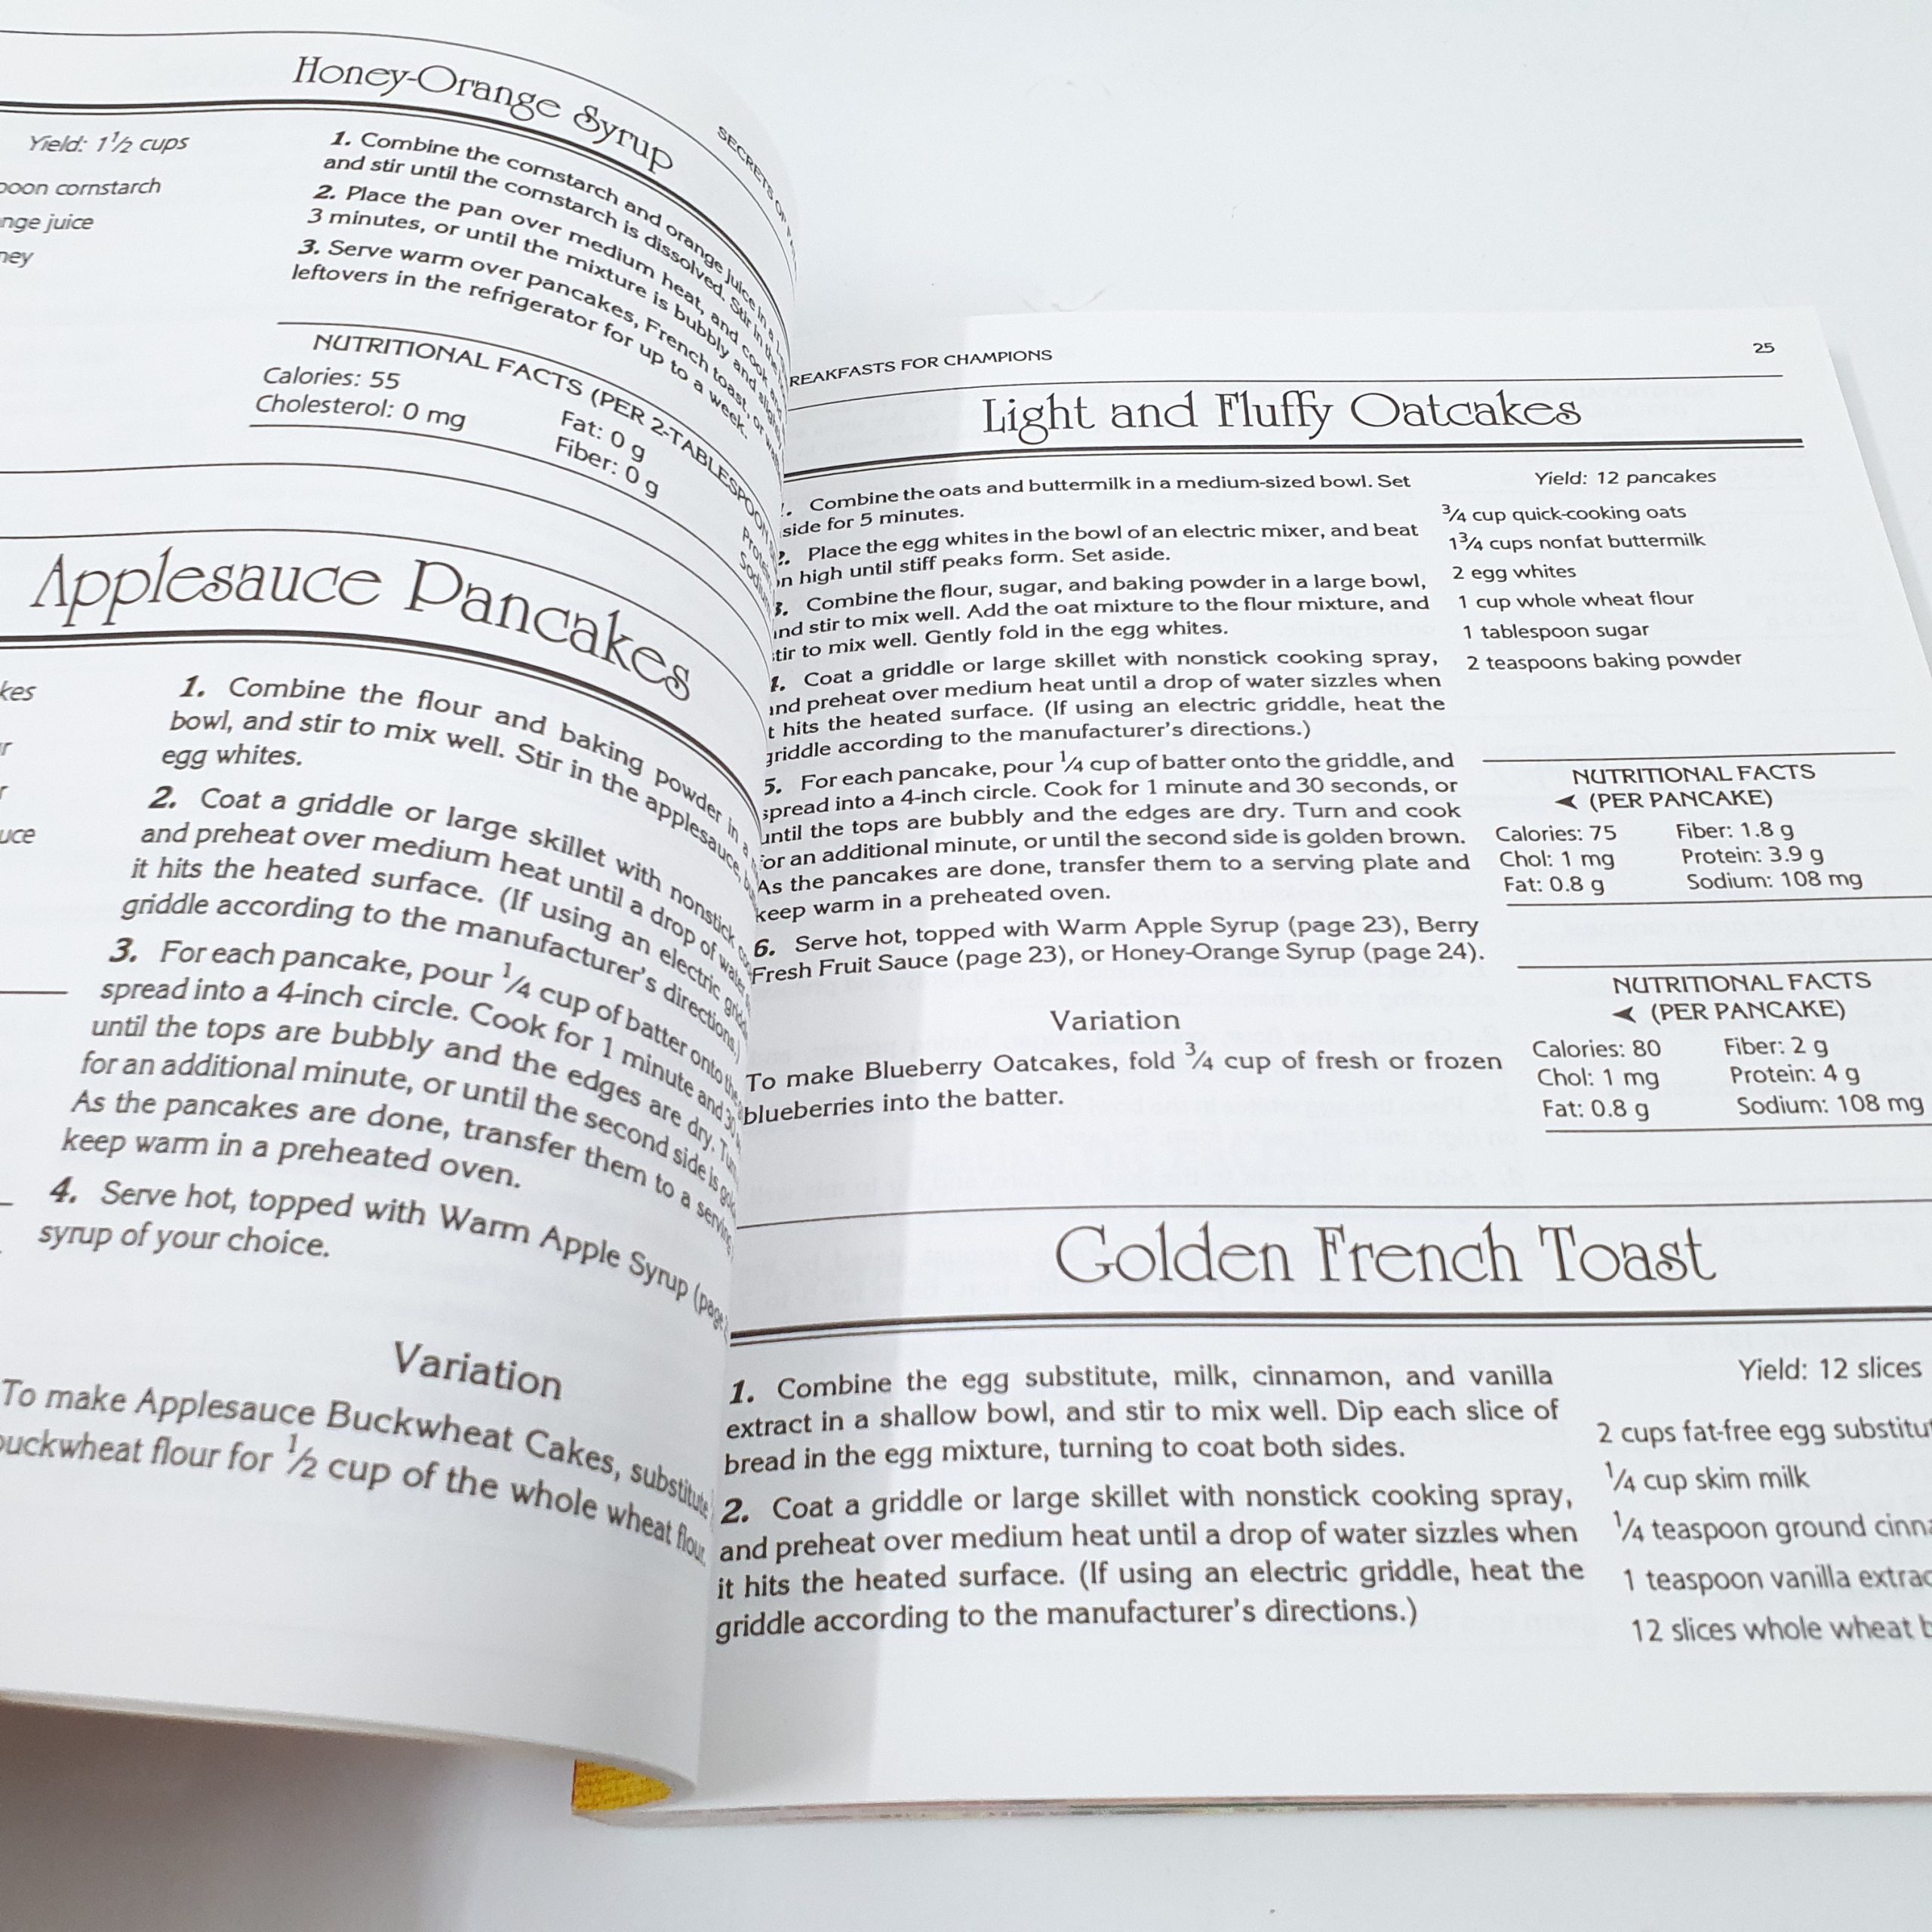 Honey-Orange Syrup
SECRETS OF
Yield: 1 1/2 cups
cornstarch
juice
1. Combine the cornstarch and orange juice in a
and stir until the cornstarch is dissolved. Stir in the
2. Place the pan over medium heat, and cook and
3 minutes, or until the mixture is bubbly and slightly
3. Serve warm over pancakes, French toast, or
leftovers in the refrigerator for up to a week.
NUTRITIONAL FACTS (PER 2-TABLESPOON
Calories: 55
Cholesterol: 0 mg
Fat: 0 g
Fiber: 0 g
Applesauce Pancakes
1. Combine the flour and baking powder in a
bowl, and stir to mix well. Stir in the applesauce,
egg whites.
2. Coat a griddle or large skillet with nonstick
and preheat over medium heat until a drop of water
it hits the heated surface. (If using an electric griddle
griddle according to the manufacturer's directions.)
3. For each pancake, pour 1/4 cup of batter onto the
spread into a 4-inch circle. Cook for 1 minute and 30
until the tops are bubbly and the edges are dry.
for an additional minute, or until the second side is
As the pancakes are done, transfer them to a serving
keep warm in a preheated oven.
4. Serve hot, topped with Warm Apple Syrup (page
syrup of your choice.
Variation
To make Applesauce Buckwheat Cakes, substitute
buckwheat flour for 1/2 cup of the whole wheat flour.
REAKFASTS FOR CHAMPIONS
25
Light and Fluffy Oatcakes
Combine the oats and buttermilk in a medium-sized bowl. Set
side for 5 minutes.
2. Place the egg whites in the bowl of an electric mixer, and beat
on high until stiff peaks form. Set aside.
3. Combine the flour, sugar, and baking powder in a large bowl,
and stir to mix well. Add the oat mixture to the flour mixture, and
stir to mix well. Gently fold in the egg whites.
4. Coat a griddle or large skillet with nonstick cooking spray,
and preheat over medium heat until a drop of water sizzles when
t hits the heated surface. (If using an electric griddle, heat the
griddle according to the manufacturer's directions.)
5. For each pancake, pour 1/4 cup of batter onto the griddle, and
spread into a 4-inch circle. Cook for 1 minute and 30 seconds, or
until the tops are bubbly and the edges are dry. Turn and cook
for an additional minute, or until the second side is golden brown.
As the pancakes are done, transfer them to a serving plate and
keep warm in a preheated oven.
6. Serve hot, topped with Warm Apple Syrup (page 23), Berry
Fresh Fruit Sauce (page 23), or Honey-Orange Syrup (page 24).
Yield: 12 pancakes
3/4 cup quick-cooking oats
1 3/4 cups nonfat buttermilk
2 egg whites
1 cup whole wheat flour
1 tablespoon sugar
2 teaspoons baking powder
NUTRITIONAL FACTS
(PER PANCAKE)
Calories: 75 Fiber: 1.8 g
Chol: 1 mg Protein: 3.9 g
Fat: 0.8 g Sodium: 108 mg
Variation
To make Blueberry Oatcakes, fold 3/4 cup of fresh or frozen
blueberries into the batter.
NUTRITIONAL FACTS
(PER PANCAKE)
Calories: 80 Fiber: 2 g
Chol: 1 mg Protein: 4 g
Fat: 0.8 g Sodium: 108 mg
Golden French Toast
1. Combine the egg substitute, milk, cinnamon, and vanilla
extract in a shallow bowl, and stir to mix well. Dip each slice of
bread in the egg mixture, turning to coat both sides.
2. Coat a griddle or large skillet with nonstick cooking spray,
and preheat over medium heat until a drop of water sizzles when
it hits the heated surface. (If using an electric griddle, heat the
griddle according to the manufacturer's directions.)
Yield: 12 slices
2 cups fat-free egg substitu
1/4 cup skim milk
1/4 teaspoon ground cinn
1 teaspoon vanilla extrac
12 slices whole wheat b